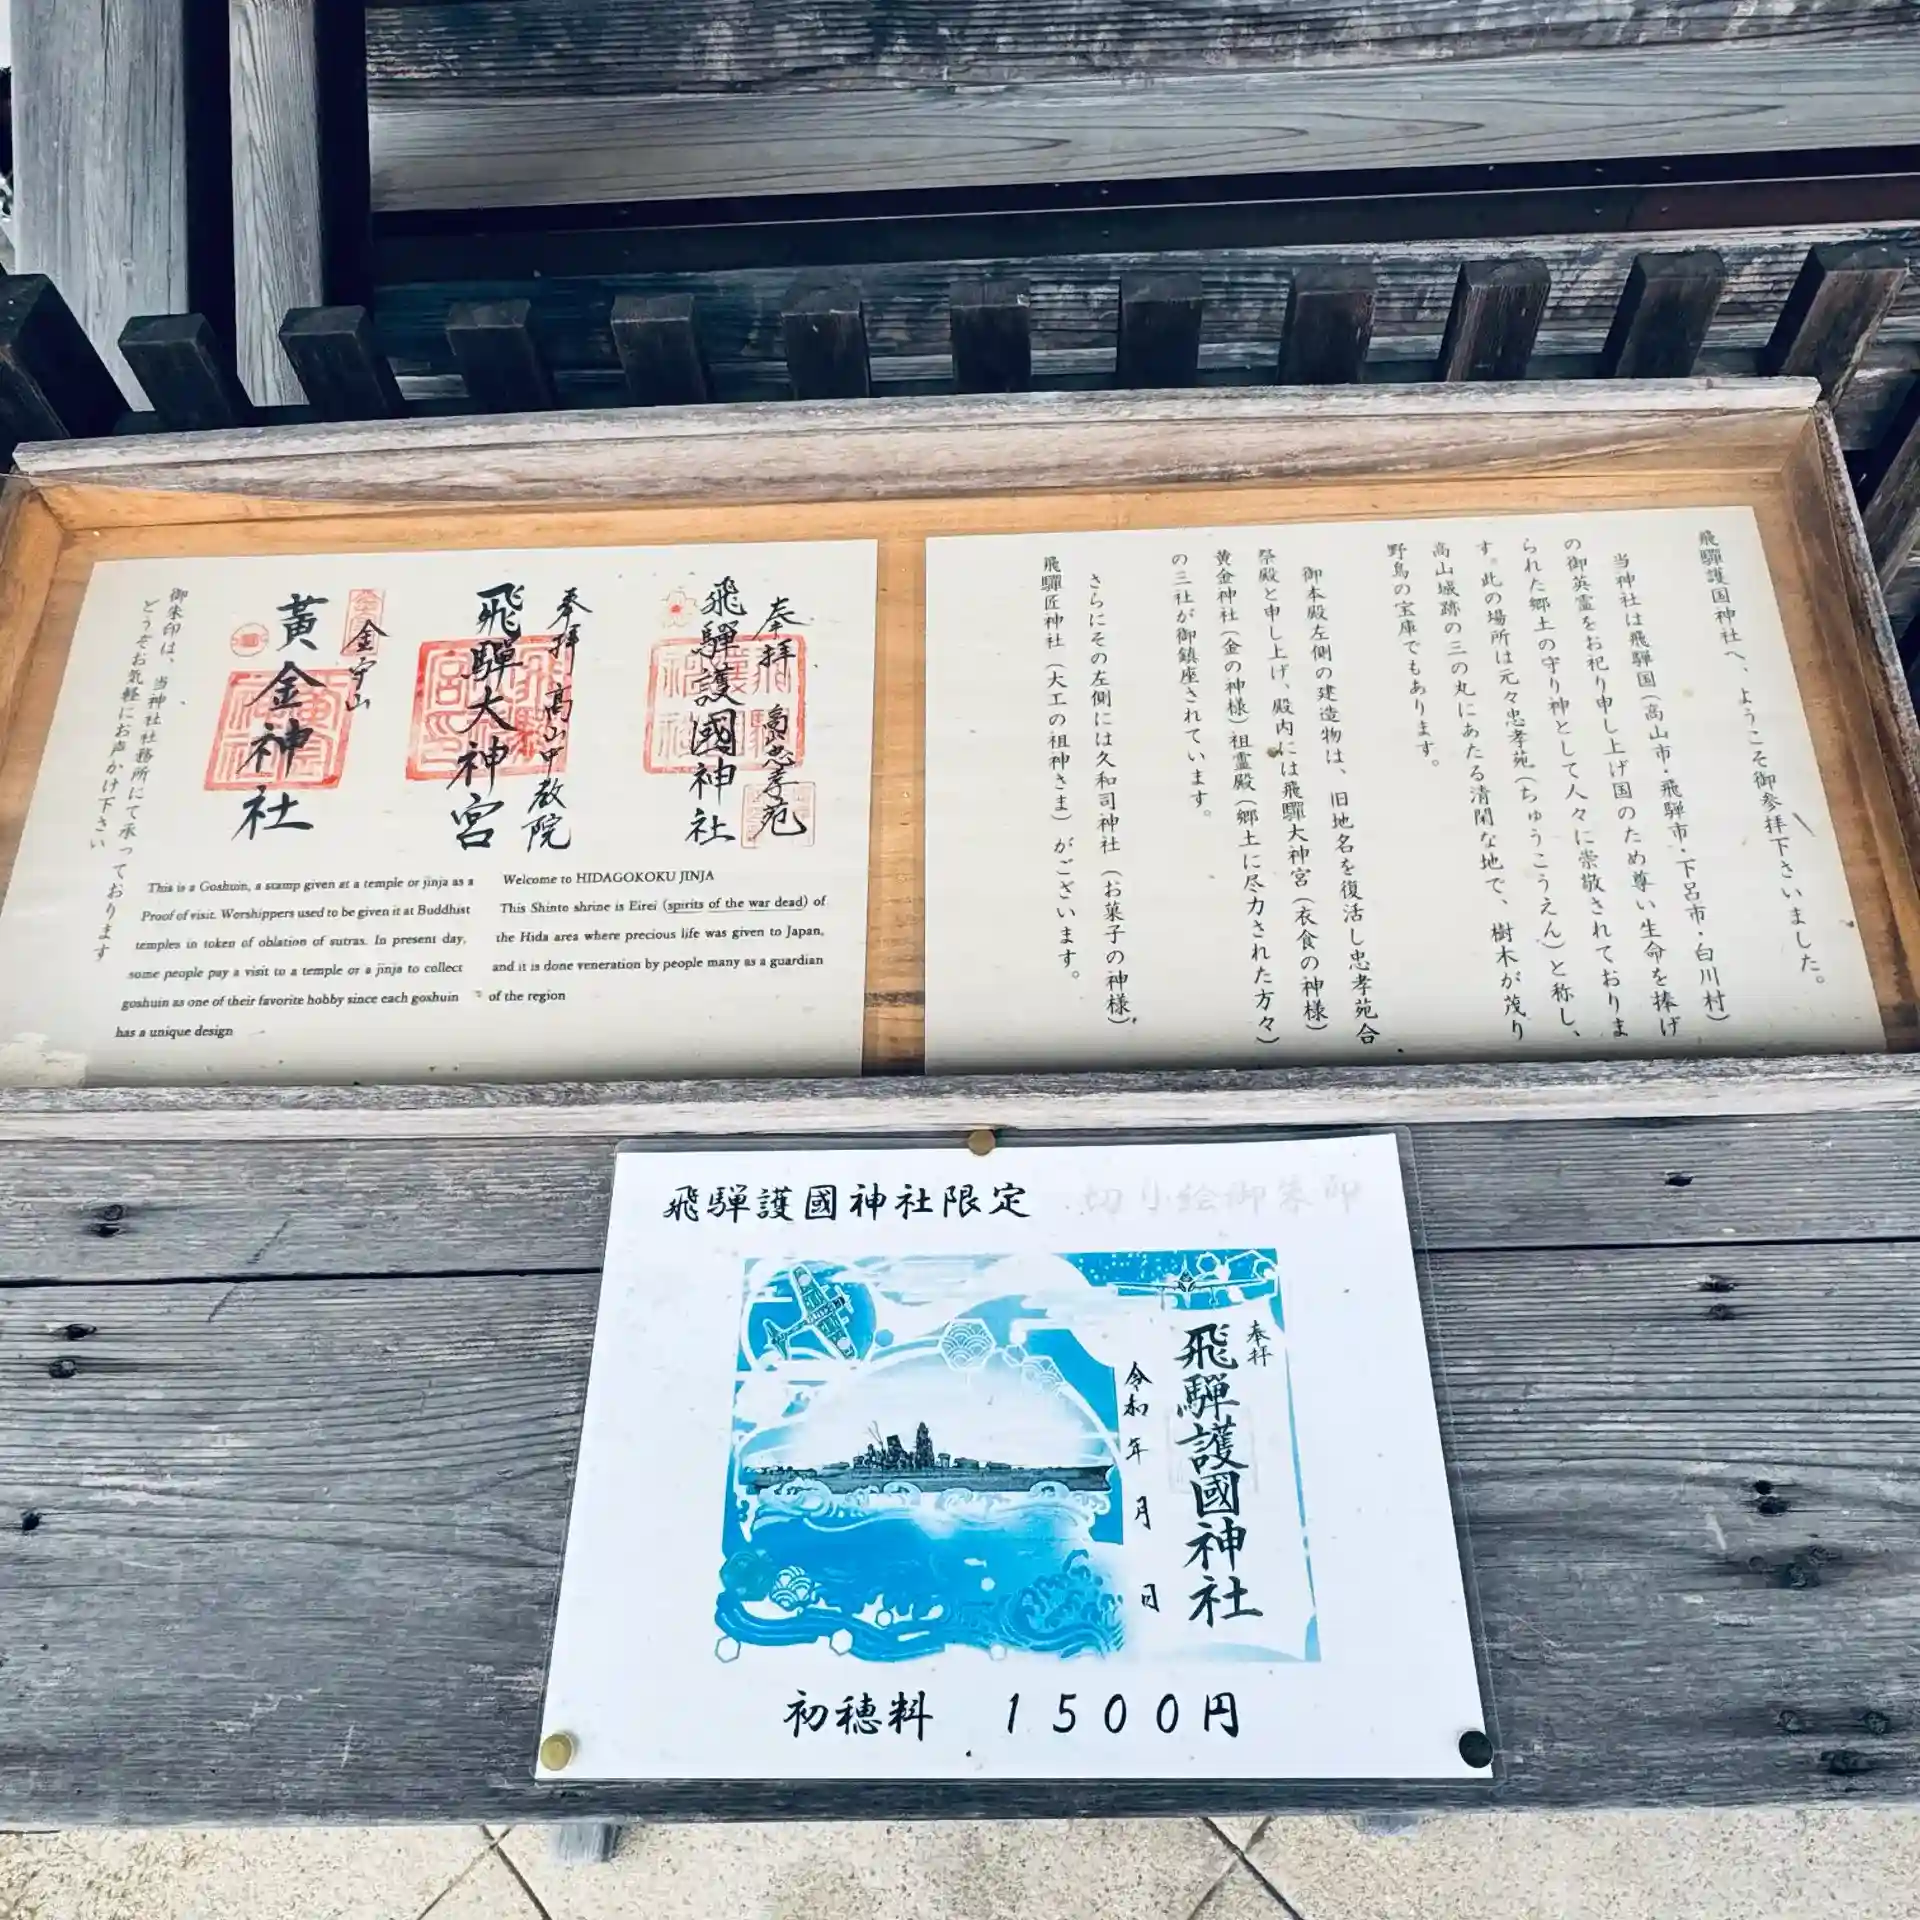 飛騨護国神社へ、ようこそ御参拝下さいました。
当神社は飛騨国(高山市・飛騨市・下呂市・白川村)
の御英霊をお祀り申し上げ国のため尊い生命を捧げ
られた郷土の守り神として人々に崇敬されておりま
す。此の場所は元々忠孝苑(ちゅうこうえん)と称し、
高山城跡の三の丸にあたる清閑な地で、樹木が茂り
野鳥の宝庫でもあります。
御本殿左側の建造物は、旧地名を復活し忠孝苑合
祭殿と申し上げ、殿内には飛騨大神宮(衣食の神様)
黄金神社(金の神様)祖霊殿(郷土に尽力された方々)
の三社が御鎮座されています。
さらにその左側には久和司神社(お菓子の神様)
飛騨匠神社(大工の祖神さま)がございます。
奉拝 高山忠孝苑
飛騨護國神社
奉拝 高山中教院
飛騨大神宮
金守山
黄金神社
御朱印は、当神社社務所にて承っております
どうぞお気軽にお声かけ下さい
Welcome to HIDAGOKOKU JINJA
This Shinto shrine is Eirei (spirits of the war dead) of
the Hida area where precious life was given to Japan,
and it is done veneration by people many as a guardian
of the region
This is a Goshuin, a stamp given at a temple or jinja as a
Proof of visit. Worshippers used to be given it at Buddhist
temples in token of oblation of sutras. In present day,
some people pay a visit to a temple or a jinja to collect
goshuin as one of their favorite hobby since each goshuin
has a unique design
飛騨護國神社限定 切り絵御朱印
奉拝
飛騨護國神社
令和 年 月 日
初穂料 1500円